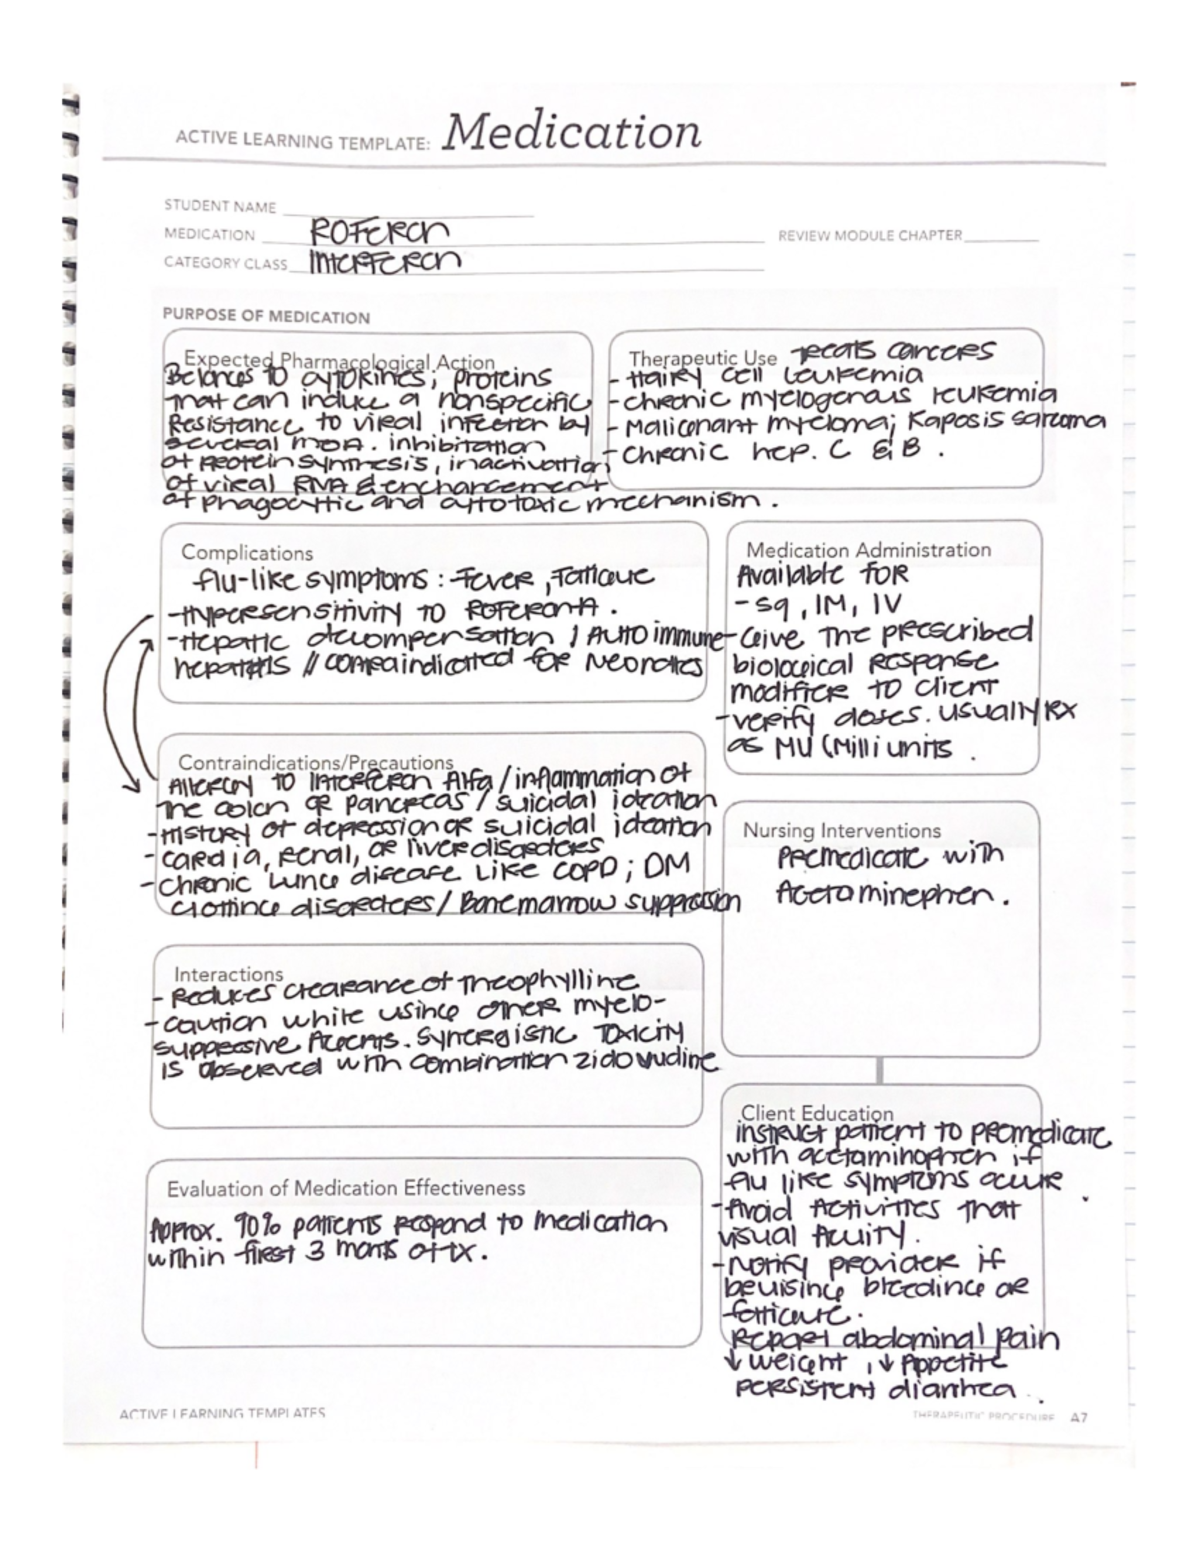 ACTIVE LEARNING TEMPLATE: Medication
STUDENT NAME
MEDICATION ROFERON
REVIEW MODULE CHAPTER
CATEGORY CLASS INTERFERON
PURPOSE OF MEDICATION
Expected Pharmacological Action
Belongs to cytokines, proteins
that can induce a nonspecific
Resistance to viral infection by
several MOA. inhibitation
of protein synthesis, inactivation
of viral RNA & enchancement
of phagocytic and cytotoxic mechanism.
Therapeutic Use Treats cancers
- Hairy cell Leukemia
- chronic myelogenous leukemia
- Malignant myeloma; Kaposis sarcoma
- Chronic hep. C & B.
Complications
flu-like symptoms: Fever, Fatigue
- HYPERSENSITIVITY TO ROFERON A.
- Hepatic decompensation / Auto immune
hepatitis // contraindicated for Neonates
Medication Administration
Available FOR
- SQ, IM, IV
- Give the prescribed
biological Response
modifier to client
- verify doses. usually RX
as MU (Milli units.
Contraindications/Precautions
Allergy to Interferon Alfa / inflammation of
the colon or pancreas / suicidal ideation
- History of depression or suicidal ideation
- cardia, renal, or liver disorders
- chronic lung disease like COPD; DM
clotting disorders / Bone marrow suppression
Nursing Interventions
Premedicate with
Acetaminephen.
Interactions
- Reduces clearance of theophylline
- caution while using other myelo-
suppressive Agents. Synergistic Toxicity
is observed with combination zidovudine
Evaluation of Medication Effectiveness
Approx. 90% patients respond to medication
within first 3 monts of tx.
Client Education
instruct patient to premedicate
with acetaminophen if
flu like symptoms occure.
- Avoid Activities that
visual Acuity.
- Notify provider if
bruising bleeding or
fatigue.
Report abdominal pain
↓ weight, ↓ Appetite
persistent diarrhea.
ACTIVE LEARNING TEMPLATES
THERAPEUTIC PROCEDURE A7